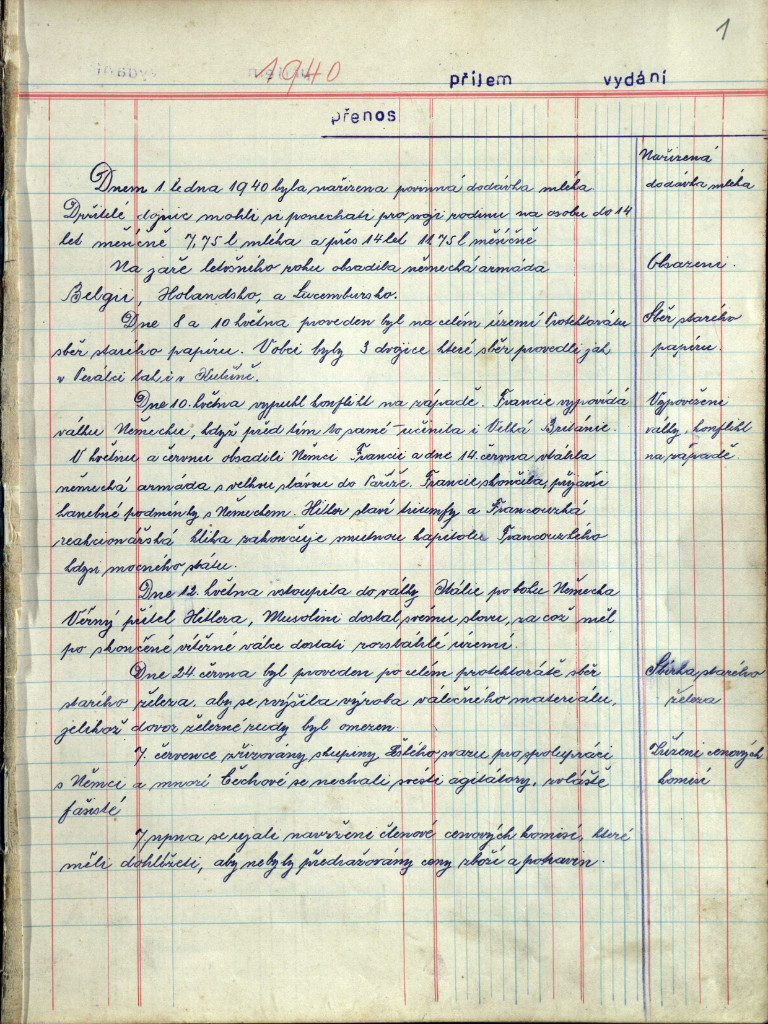 1
1940
příjem vydání
přenos
Dnem 1. ledna 1940 byla nařízena povinná dodávka mléka
Nařízená
dodávka mléka
Držitelé dojnic mohli si ponechati pro svoji rodinu na osobu do 14
let měsíčně 7,75 l mléka a přes 14 let 11,75 l měsíčně
Na jaře letošního roku obsadila německá armáda
Obsazení.
Belgii, Holandsko, a Lucembursko.
Dne 8 a 10 května proveden byl na celém území Protektorátu
Sběr starého
sběr starého papíru. V obci byly 3 dvojice které sběr provedli jak
papíru.
v tak i v
Dne 10. května vypukl konflikt na západě. Francie vypovídá
Vypovězení
válku Německu, když před tím to samé učinila i Velká Británie.
války, konflikt
V květnu a červnu obsadili Němci Francii a dne 14. června vtáhla
na západě.
německá armáda s velkou slávou do Paříže. Francie skončila, přijavši
hanebné podmínky s Německem. Hitler slaví triumfy a Francouzká
reakcionářská klika zakončuje smutnou kapitolu Francouzkého
kdysi mocného státu.
Dne 12. května vstoupila do války Itálie po boku Německa
Věrný přítel Hitlera, Musolini dostál svému slovu, za což měl
po skončené vítězné válce dostati rozsáhlé území.
Dne 24. června byl proveden po celém protektorátě sběr
Sbírka starého
starého železa, aby se zvýšila výroba válečného materiálu,
železa
jelikož dovoz železné rudy byl omezen.
7. července zřizovány skupiny svazu pro spolupráci
Zřízení cenových
s Němci a mnozí Čechové se nechali svésti agitátory, zvláště
komisí
fašisté
7 srpna se ujali navržení členové cenových komisí, které
měli dohlížeti, aby nebyly předražovány ceny zboží a potravin.